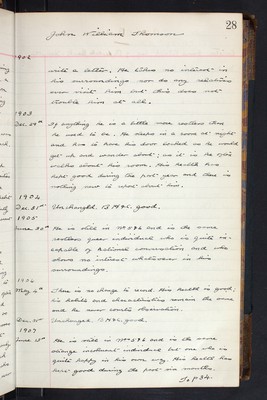 28
John William Thomson
1902
with a letter. He takes no interest in
his surroundings nor do any relatives
ever visit him but this does not
trouble him at all.
1903
Dec. 29th If anything he is a little more restless than
he used to be. He sleeps in a room at night
and has to have his door locked as he would
get up and wander about; as it is he
walks about his room. His health has
kept good during the past year and there is
nothing new to
1904
Dec 31st Unchanged. B. H. &c. good.
1905
June 30th He is still in No 5 & 6 and is the same
restless queer individual who is quite in-
capable of rational conversation and who
shows no interest whatsoever in his
surroundings.
1906
May 4th There is no change to record. His health is good;
his habits and characteristics remain the same
and he never courts observation.
Dec. Unchanged. B. H. &c. good.
1907
June 15th He is still in No 5 & 6 and is the same
strange insolent individual but one who is
quite happy in his own way. His health has
been good during the past six months.
To p 34.